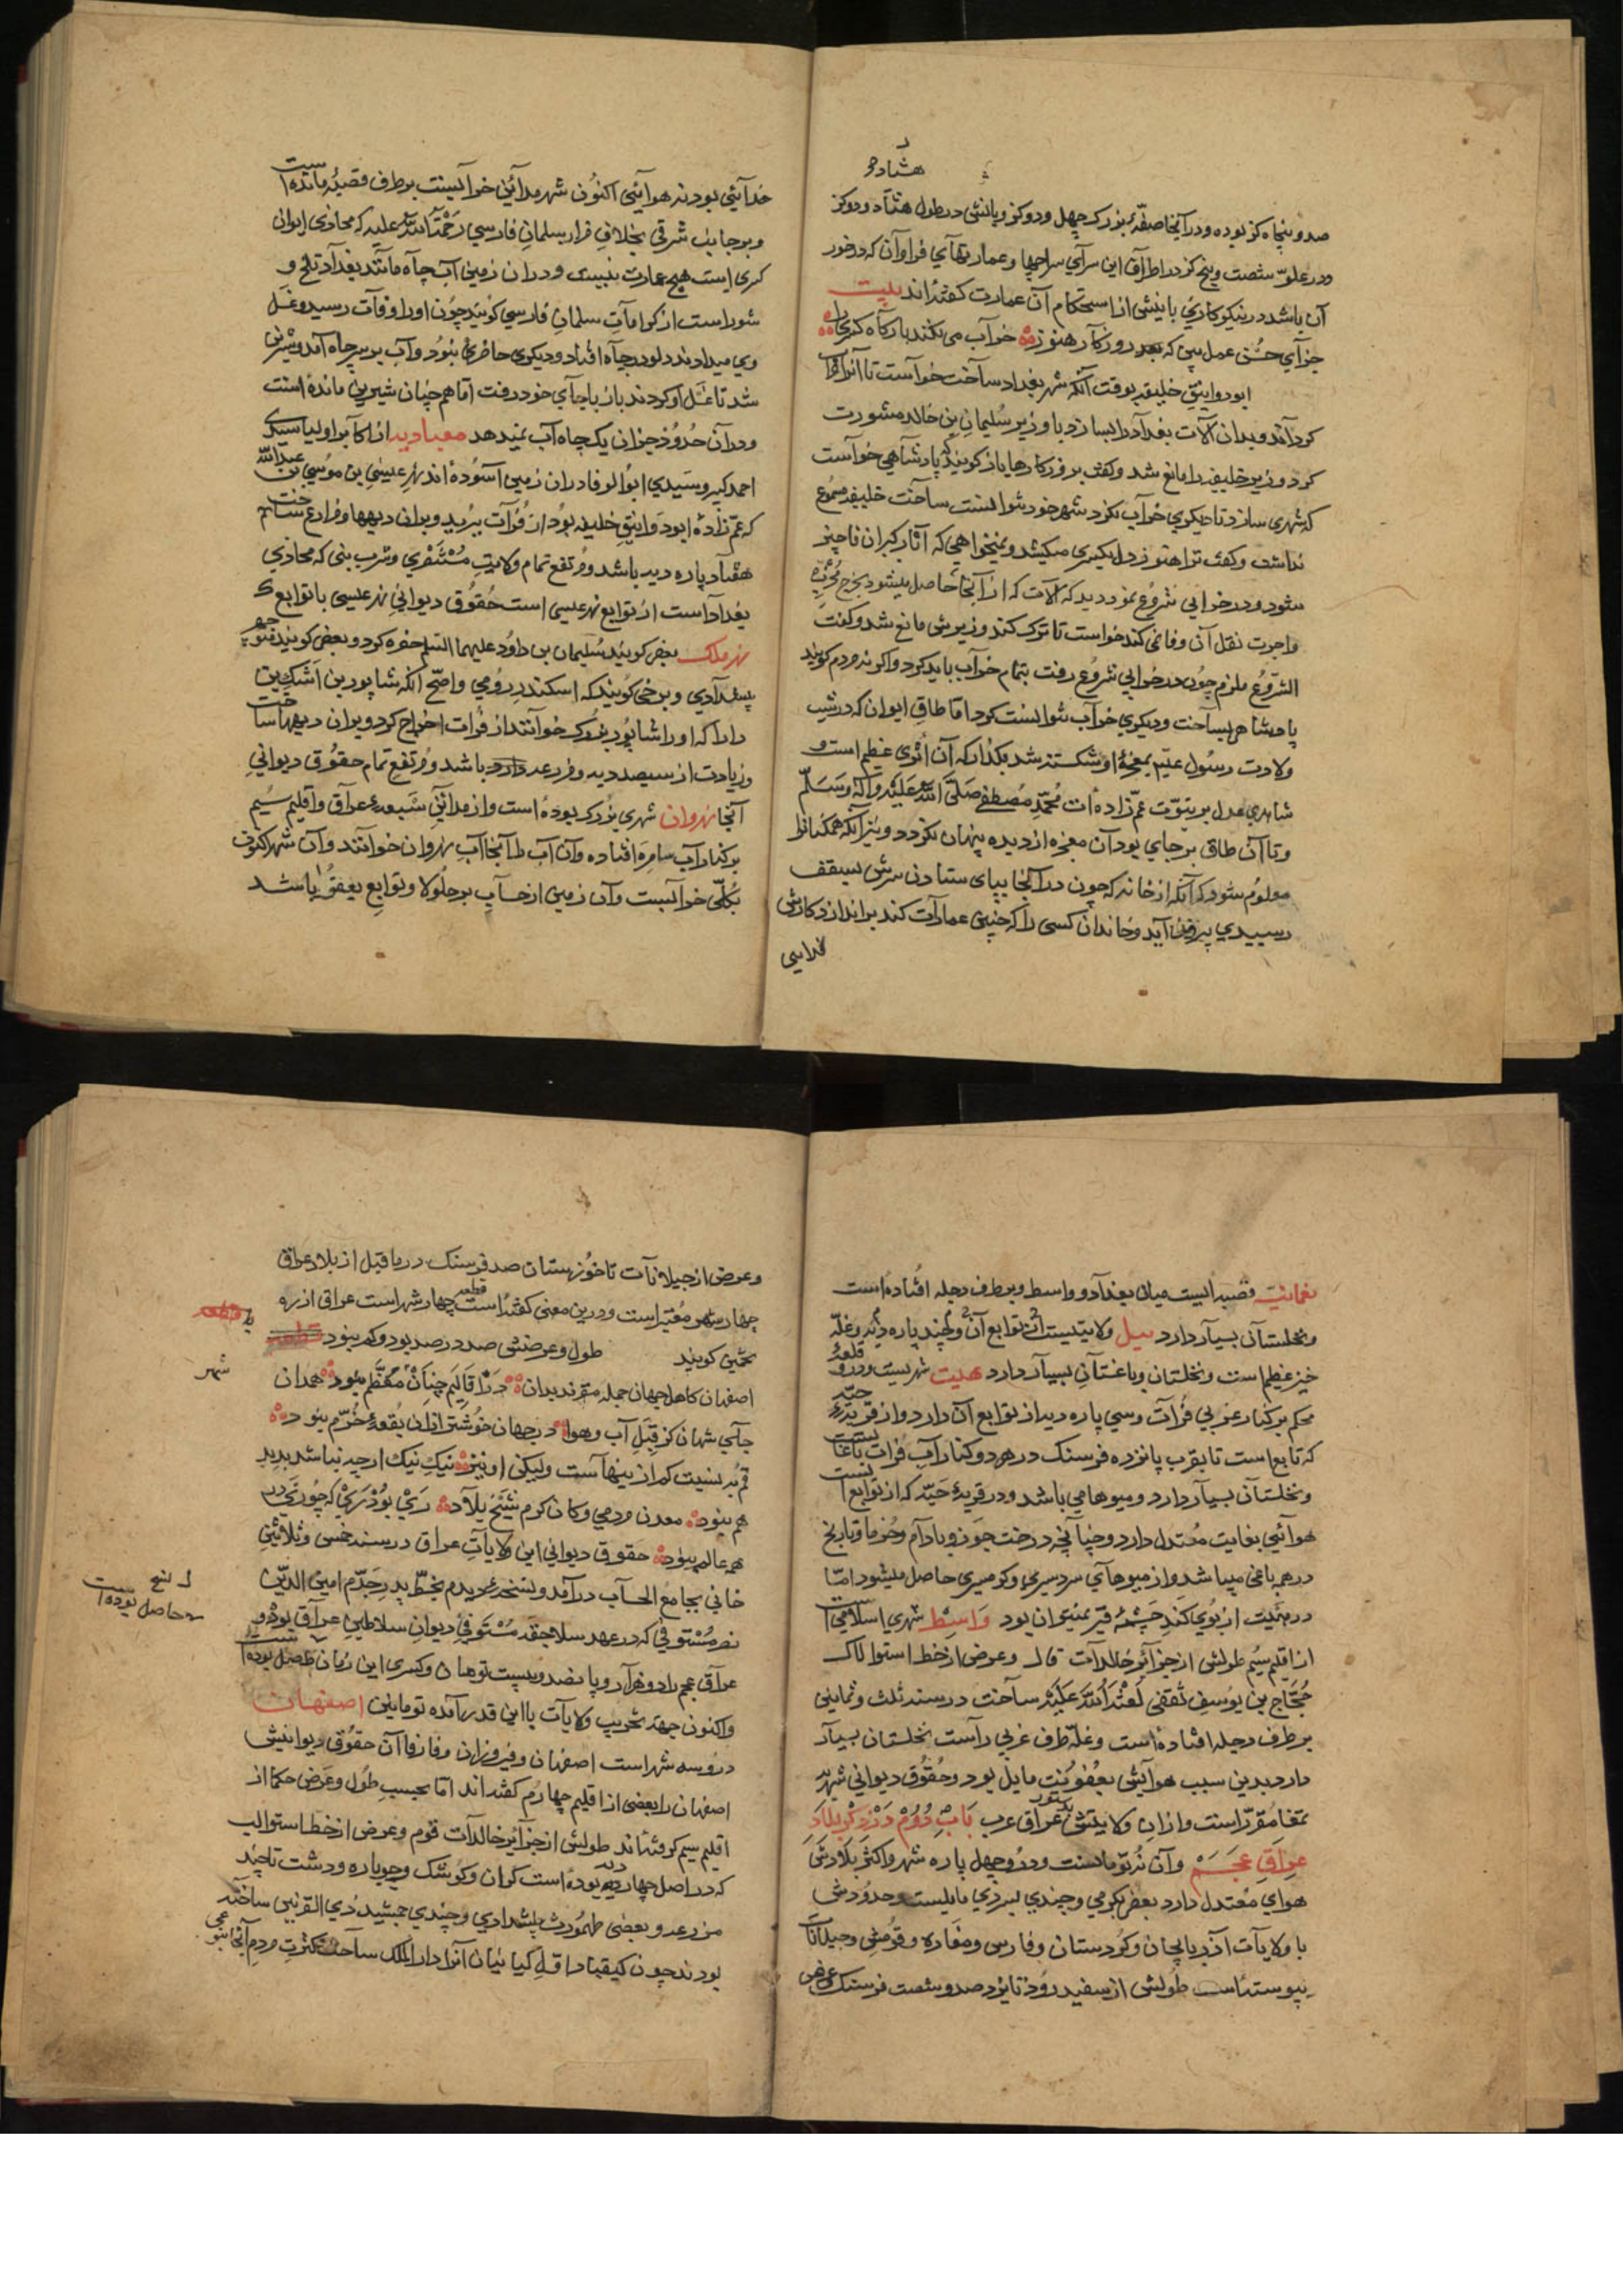 هشتاد و
صد و پنجاه کز بوده و در آنجا صفّهٔ بزرک چهل و دو کز و پانش در طول هشتاد و دو کز
و در علوّ شصت و پنج کز در اطراف این سرای سراچها و عمارتهای فراوان که در خور
آن باشد در نیکو کاری بانیش از استحکام آن عمارت کفته‌اند بیت
جزای حسن عمل بین که روزکار هنوز خراب می نکند بارکاه کسری را
ابو دوانیق خلیفه بوقت آنکه شهر بغداد ساخت خواست تا آنرا خراب
کرداند و بدان آلات بغداد را بسازد با وزیر سلیمان بن خالد مشورت
کرد وزیر خلیفه را مانع شد و کفت بر روزکارها باز کویند که پادشاهی خواست
که شهری سازد تا دیکری خراب نکرد شهر خود نتوانست ساخت خلیفه مسموع
نداشت و کفت ترا هنوز دل بکسری میکشد و نمیخواهی که آثار کبران ناچیز
شود و در خرابی شروع نمود دید که آلات که از آنجا حاصل میشود بخرج
و اجرت نقل آن وفا نمی کند خواست تا ترک کند وزیرش مانع شد و کفت
الشروع ملزم چون در خرابی شروع رفت بتمام خراب باید کرد و اکر نه مردم کویند
پادشاهی بساخت و دیکری خراب نتوانست کرد اما طاق ایوان که در شب
ولادت رسول علیه بمعجزهٔ او شکسته شد بکذار که آن اثری عظیم است و
شاهدی عدل بر نبوت عم زاده‌ات محمد مصطفی صلی الله علیه وآله وسلم
و تا آن طاق بر جای بود آن معجزه از دیده پنهان نکردد و نیز آنکه همکنانرا
معلوم شود که آنکه از خانه که چون در آنجا بپای ستادن سرش بسقف
رسیدی بیرون آید و خاندان کسی را که چنین عمارات کند براندازد کارش
خدایی
خدایی بود نه هوایی اکنون شهر مداین خرابست بر طرف قصبهٔ مانده است
و بر جانب شرقی بخلاف قرار سلمان فارسی رحمة الله علیه که محاذی ایوان
کسری است هیچ عمارت نیست و در آن زمین آب چاه مانند بغداد تلخ و
شور است از کرامات سلمان فارسی کویند چون او را وفات رسید و غسل
وی میدادند دلو در چاه افتاد و دیکری حاضری نبود و آب بر سر چاه آمد و شیرین
شد تا غسل او کردند باز با جای خود رفت اما همچنان شیرین مانده است
و در آن حدود جز آن یک چاه آب نمیدهد از اکابر اولیا سیدی
احمد کبیر و سیدی ابو الوفا در آن زمین آسوده‌اند نهر عیسی بن موسی بن عبدالله
که عم زادهٔ ابو دوانیق خلیفه بود از فرات ببرید و بر آن دیهها و مزارع ساخت
هفتاد پاره دیه باشد و مرتفع تمام ولایت و شرب بنی که محاذی
بغداد است از توابع نهر عیسی است حقوق دیوانی نهر عیسی با توابع
نهر ملک بعضی کویند سلیمان بن داود علیهما السلم حفره کرد و بعضی کویند منوچهر
پیشدادی و برخی کویند که اسکندر رومی و اصح آنکه شاپور بن اشک بن
دارا که او را شاپور بزرک خوانند از فرات اخراج کرد و بر آن دیهها ساخت
و زیادت از سیصد دیه و مزرعه باشد و مرتفع تمام حقوق دیوانی
آنجا نهروان شهری بزرک بوده است و از مداین سبعهٔ عراق و اقلیم سیم
بر کنار آب سامره افتاده و آن آب را آنجا آب نهروان خوانند و آن شهر اکنون
بکلی خرابست و آن زمین از حساب بر جلولا و توابع یعقوبا باشد
نعمانیت قصبه‌ایست میان بغداد و واسط و بر طرف دجله افتاده است
و نخلستان بسیار دارد نیل ولایتیست از توابع آن و لچند پاره دیه و غله
خیز عظیم است و نخلستان و باغستان بسیار دارد هیت شهریست و در و قلعهٔ
محکم بر کنار غربی فرات و سی پاره دیه از توابع آن دارد و از قریهٔ جبه
که تابع است تا بقرب پانزده فرسنک در هر دو کنار آب فرات باغستانست
و نخلستان بسیار دارد و میوها می باشد و در قریهٔ جبه که از توابع است
هوائی بغایت معتدل دارد و چنانچه درخت جوز و بادام و خرما و نارنج
در هر باغی میباشد و از میوهای سردسیری و کرمسیری حاصل میشود اما
در هیت از بوی کند چشمهٔ قیر نمیتوان بود واسط شهری اسلامی است
از اقلیم سیم طولش از جزایر خالدات و عرض از خط استوا لاک
حجاج بن یوسف ثقفی لعنة الله علیه ساخت در سنه ثلث و ثمانین
بر طرف دجله افتاده است و غله طرف غربی راست نخلستان بسیار
دارد بدین سبب هوایش بعفونت مایل بود و حقوق دیوانی شهر
بتمغا مقرر است و از آن ولایتش عراق عرب باب دوم در ذکر بلاد
عراق عجم و آن نه توماست و در و چهل پاره شهر و اکثر بلادش
هوای معتدل دارد بعضی بکرمی و چندی بسردی مایلست و حدودش
با ولایات آذربایجان و کردستان و فارس و مفازه و قومش و جیلانات
پیوسته است طولش از سفید رود تا یزد صد و شصت فرسنک و عرض
و عرض از جیلانات تا خوزستان صد فرسنک در ما قبل از بلاد عراق
چهار شهر معتبر است و درین معنی کفته‌است قطعه چهار شهر است عراق از ره
تخمین کویند طول و عرضش صد در صد بود و کم نبود
شهر
اصفهان کاهل جهان جمله مقرند بدان در اقالیم چنان معظم نبود همدان
جای شهان کز قبل آب و هوا در جهان خوشتر از آن بقعهٔ خرم نبود
قم به نسبت کم از اینهاست ولیکن او نیز نیک نیک ارچه نباشد بد بد
هم نبود معدن مردمی و کان کرم شیخ بلاد ری بود ری که چو ری در
همه عالم نبود حقوق دیوانی این ولایات عراق در سنه خمس و ثلاثین
خانی بجامع الحساب در آمد و نسخهٔ دیدم بخط پدر جدم امین الدین
نصر مستوفی که در عهد سلاجقه مستوفی دیوان سلاطین عراق بوده و
عراق عجم را دو هزار و پانصد و بیست تومان و کسری این زمان حاصل بوده است
و اکنون جهت تخریب ولایات با این قدر آمده تومان اصفهان
درو سه شهر است اصفهان و فیروزان و فارفاآن حقوق دیوانیش
اصفهان را بعضی از اقلیم چهارم کفته‌اند اما بحسب طول و عرض حکما از
اقلیم سیم کرفته‌اند طولش از جزایر خالدات و عرض از خط استوا لب
که در اصل چهار دیه بوده است کران و کوشک و جوباره و دشت تا چند
مزرعه و بعضی طهمورث پیشدادی و چندی جمشید و ذی القرنین ساخته
بودند چون کیقباد اول کیانیان آنرا دار الملک ساخت کثرت مردم آنجا